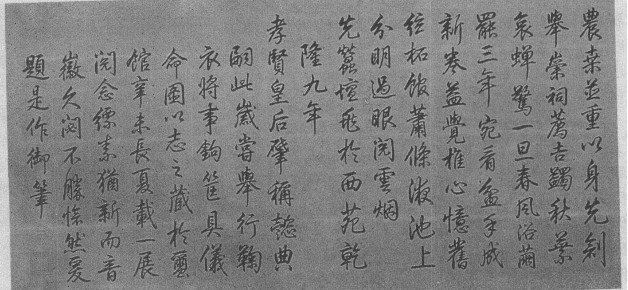 農桑並重以身先創
舉崇祠薦吉蠲秋葉
哀蟬驚一旦春風浴繭
罷三年宛看盆手成
新卷益覺椎心憶舊
絃柘館蕭條液池上
分明過眼閱雲烟
先蠶壇於西苑乾
隆九年
孝賢皇后肇稱懿典
嗣此歲嘗舉行鞠
衣將事鉤筐具儀
命圖以志之藏於蠶
館辛未長夏載一展
閱念縹素猶新而音
徽久閟不勝悽然爰
題是作御筆